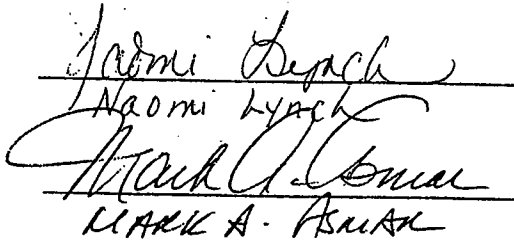 Naomi Lynch
Naomi Lynch
Mark A. Asmar
MARK A. ASMAR